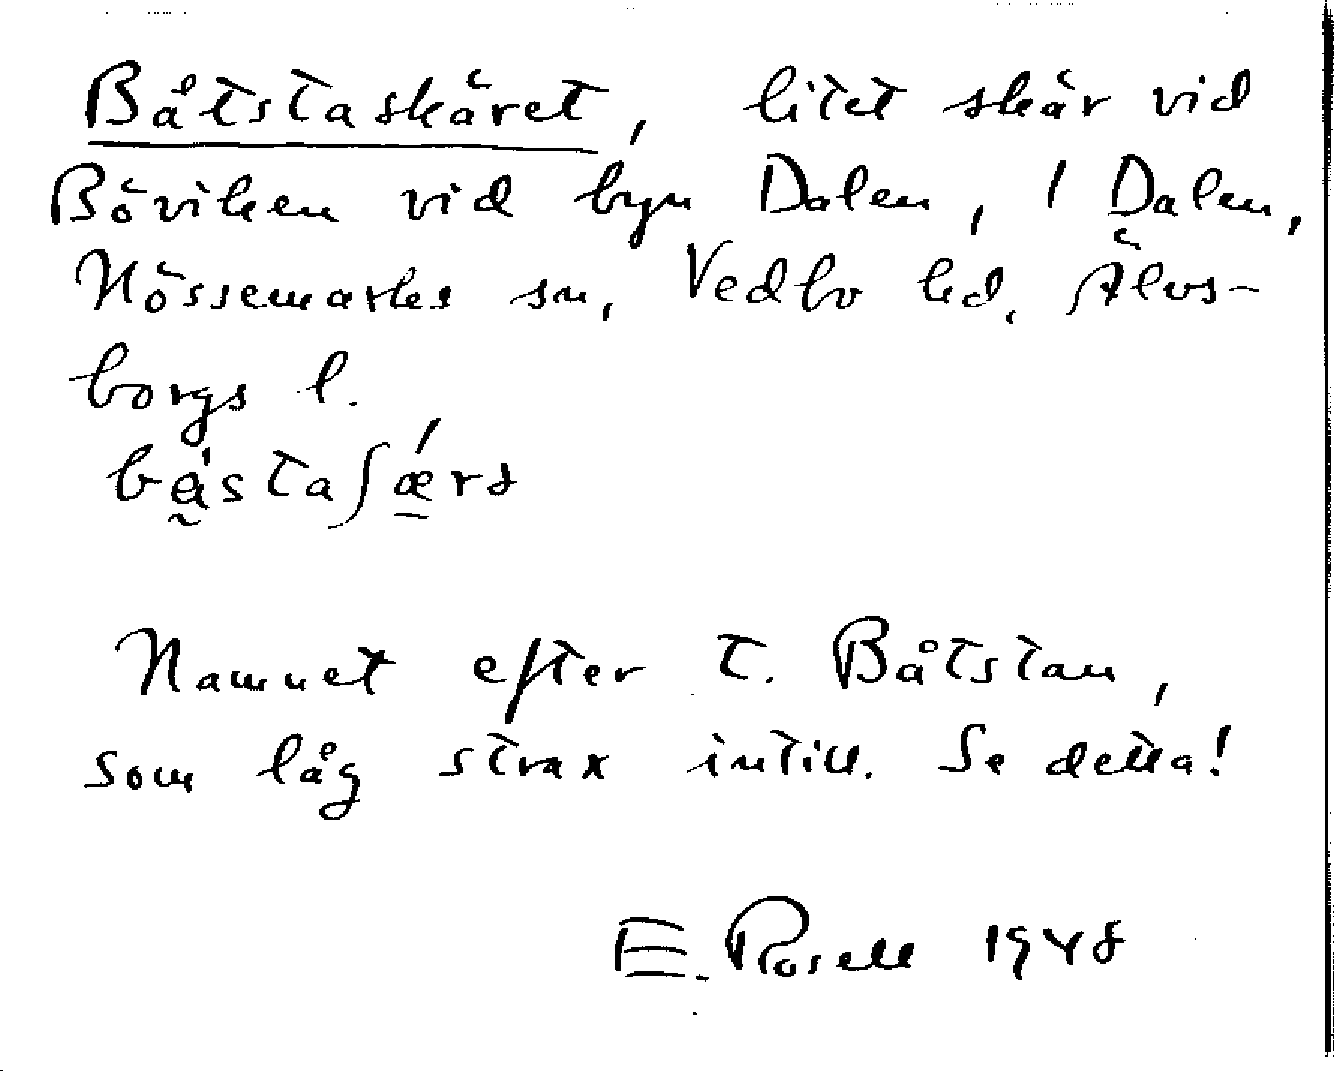 Båtstaskäret, litet skär vid
Böviken vid byn Dalen, 1 Dalen,
Nössemarks sn, Vedbo hd, Älvs-
borgs l.
Namnet efter t. Båtstan,
som låg strax intill. Se detta!
E. Rosell 1948